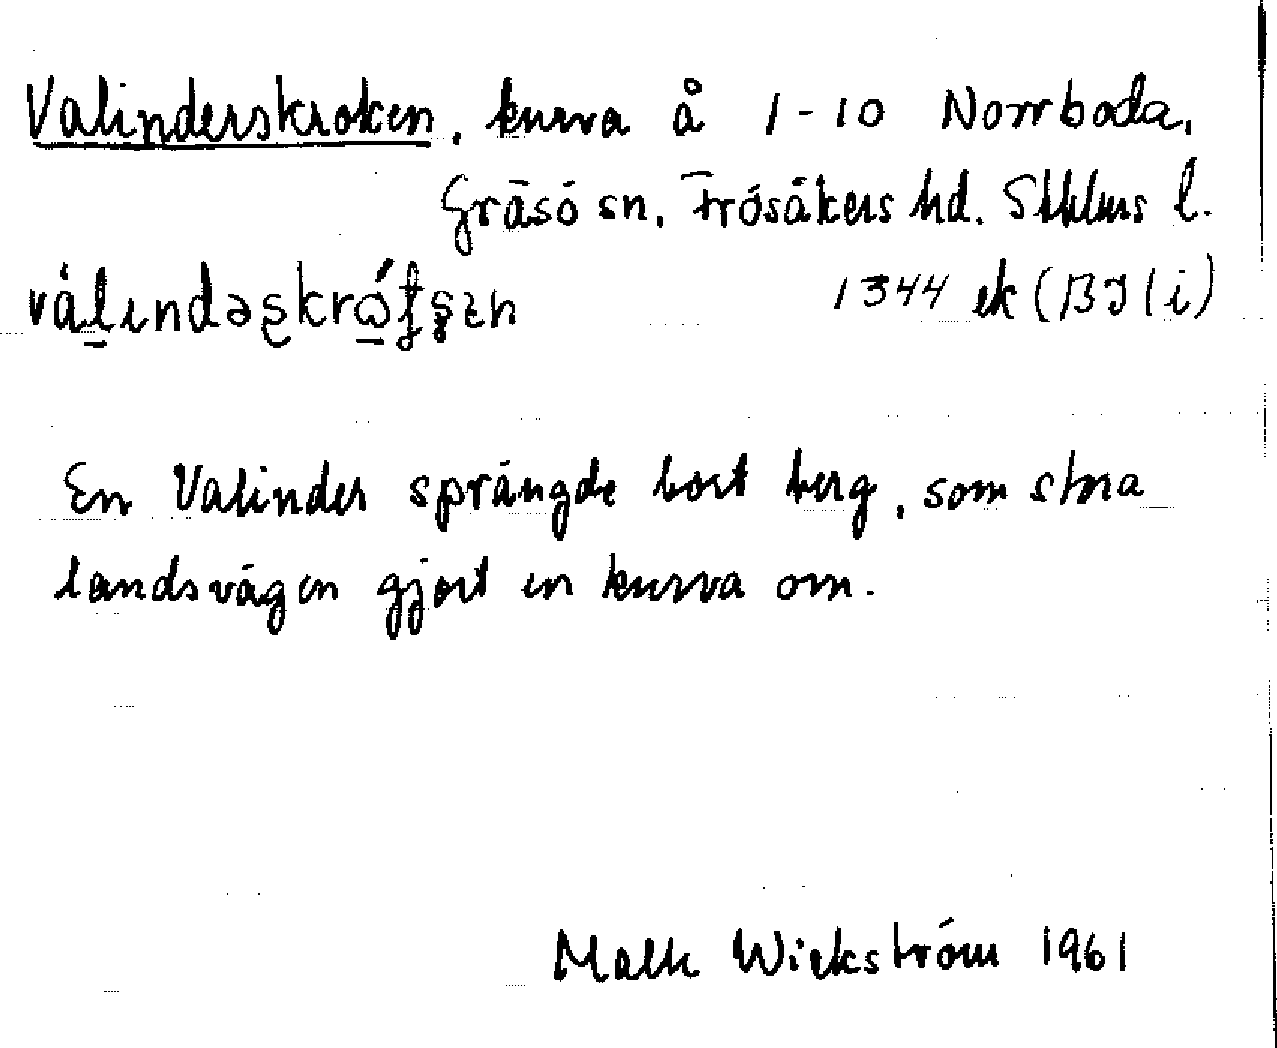 Valinderskroken, kurva å 1-10 Norrboda,
Gräsö sn, Frösåkers hd. Sthlms l.
1344 ek (BJ 1 i)
En Valinder sprängde bort berg, som stora
landsvägen gjort en kurva om.
Wickström 1961